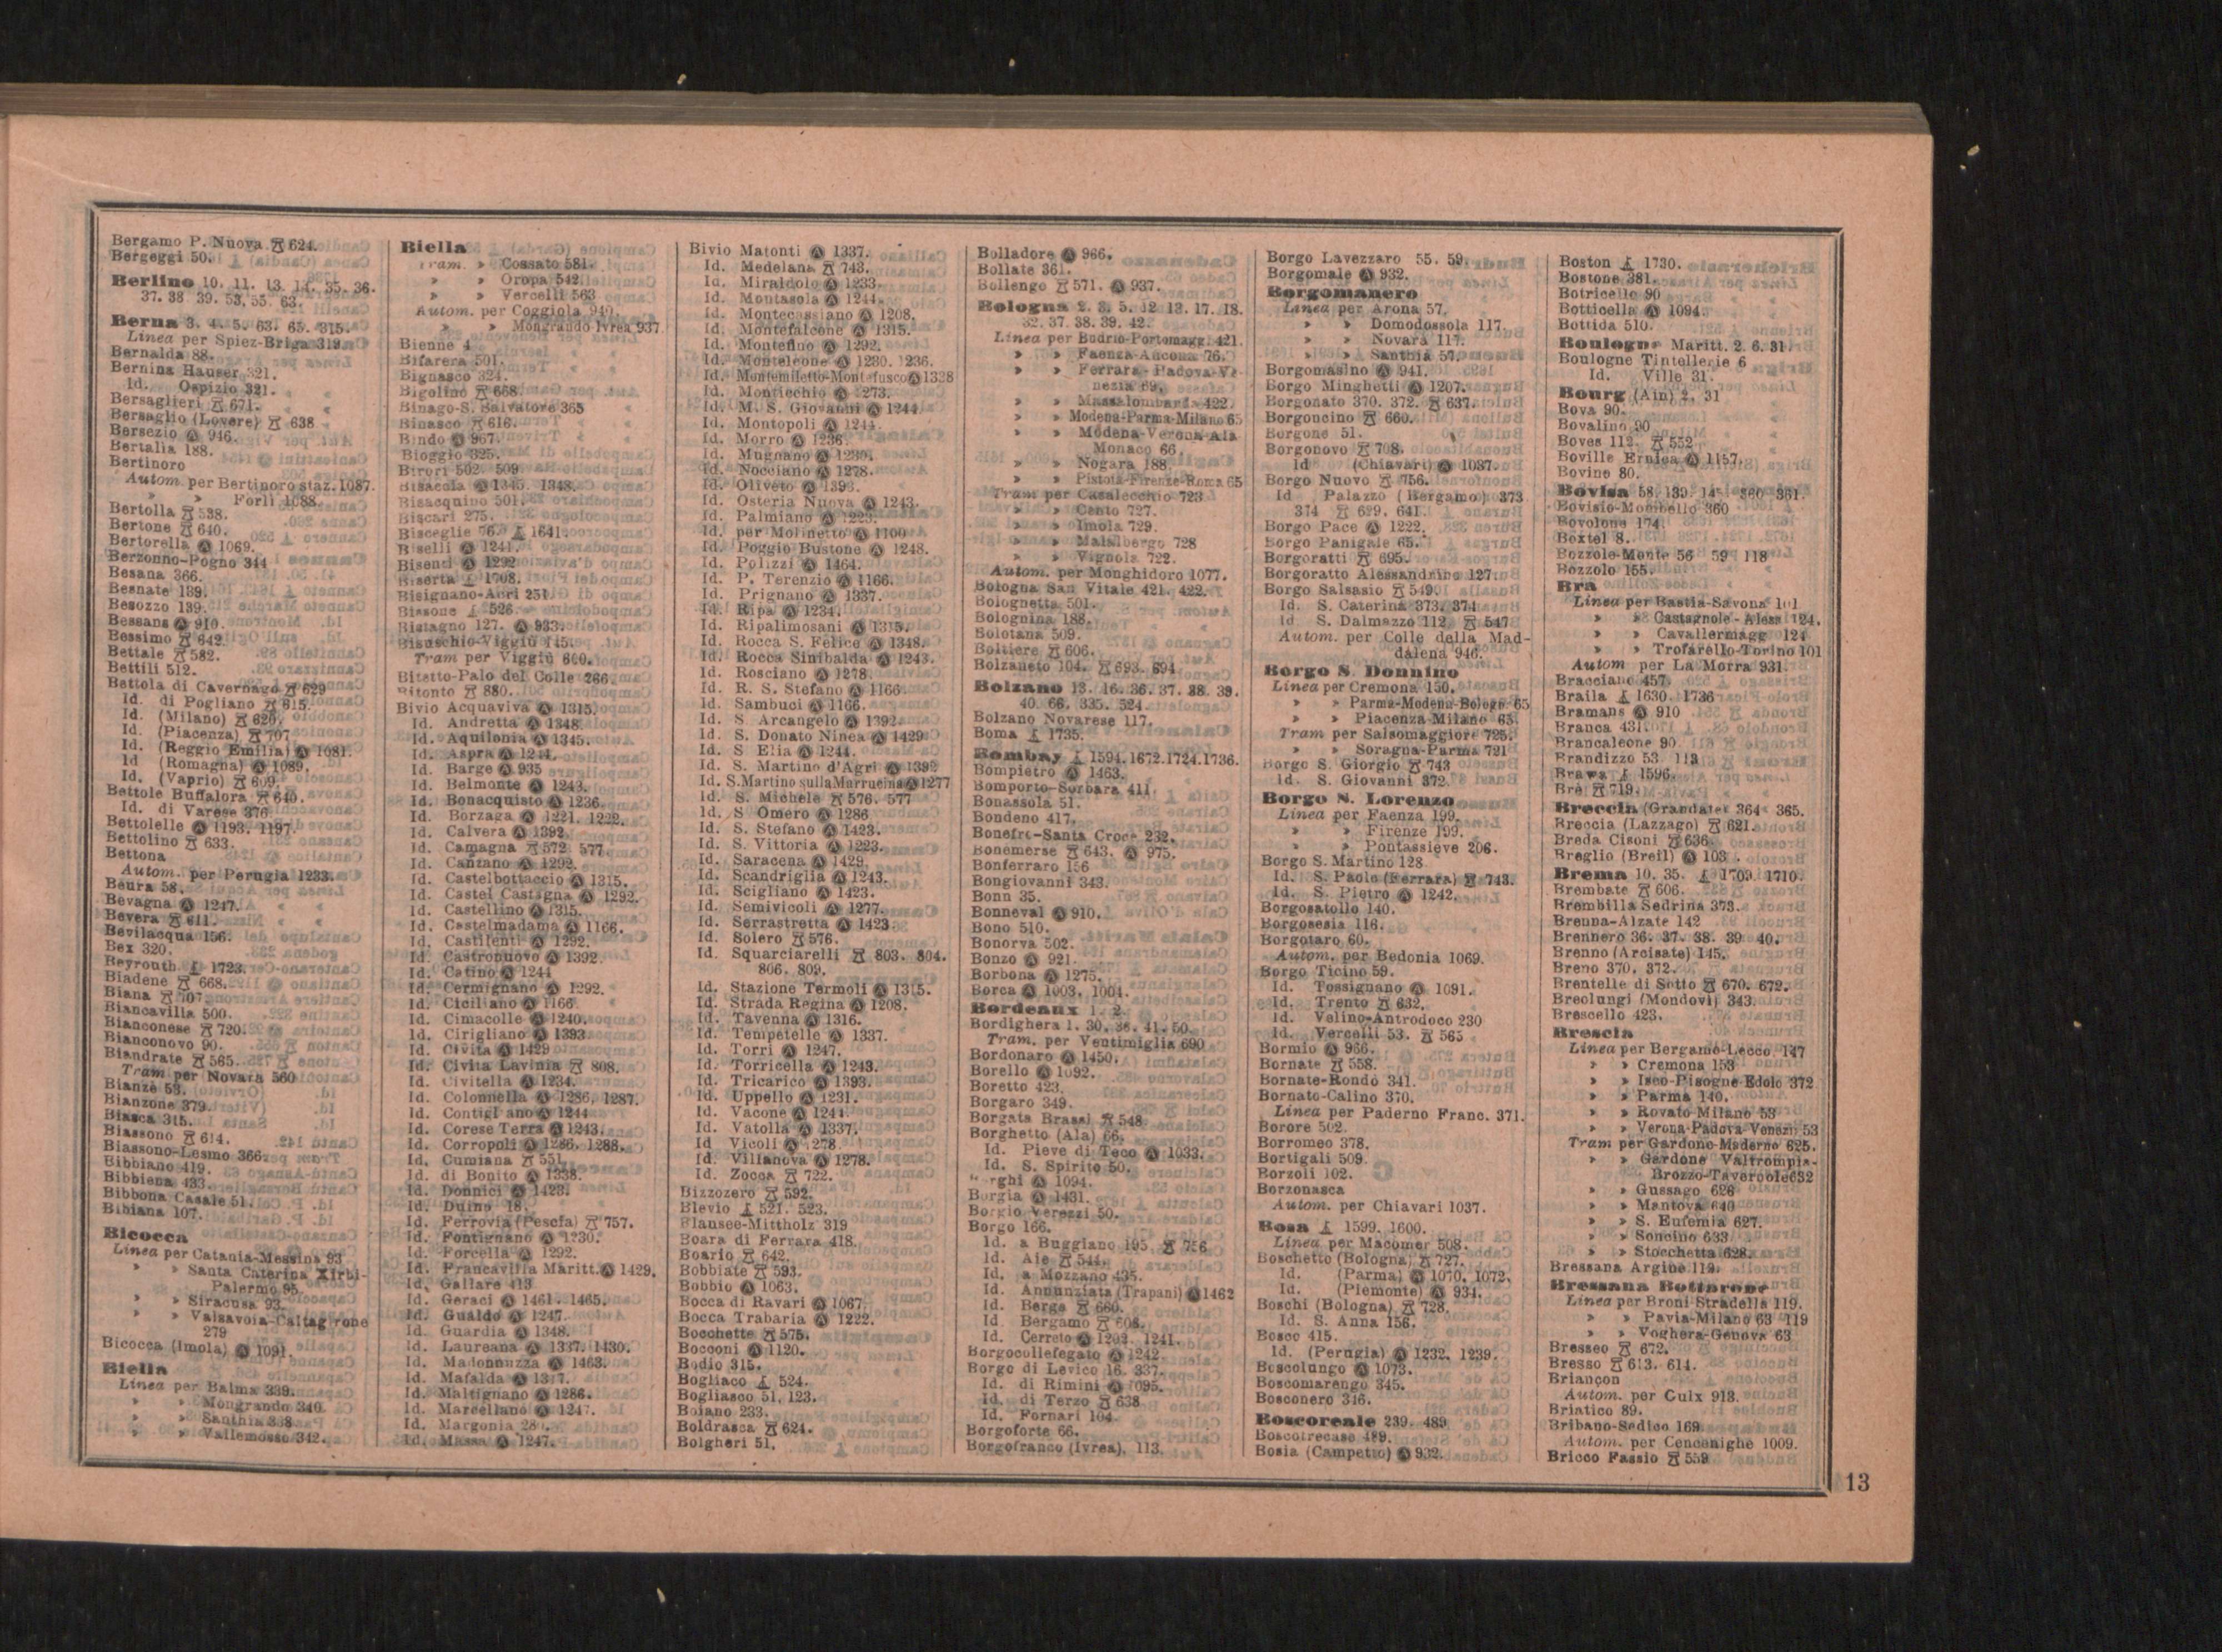 Bergamo P. Nuova 624.
Bergeggi 50.
Berlino 10. 11. 13. 14. 35. 36.
37. 38 39. 53. 55. 63.
Berna 3. 4. 5. 63. 65. 315.
Linea per Spiez-Briga 319.
Bernalda 88.
Bernina Hauser 321.
Id. Ospizio 321.
Bersaglieri 671.
Bersaglio (Lovere) 638
Bersezio Ⓐ 946.
Bertalia 188.
Bertinoro
Autom. per Bertinoro staz. 1087.
» » Forlì 1088.
Bertolla 538.
Bertone 640.
Bertorella Ⓐ 1069.
Berzonno-Pogno 344
Besana 366.
Besnate 139.
Besozzo 139.
Bessans Ⓐ 910.
Bessimo 642.
Bettale 582.
Bettili 512.
Bettola di Cavernago 629
Id. di Pogliano 615.
Id. (Milano) 626.
Id. (Piacenza) 707
Id. (Reggio Emilia) Ⓐ 1081.
Id (Romagna) Ⓐ 1089.
Id. (Vaprio) 609.
Bettole Buffalora 640.
Id. di Varese 376.
Bettolelle Ⓐ 1193. 1197.
Bettolino 633.
Bettona
Autom. per Perugia 1233.
Beura 58.
Bevagna Ⓐ 1247.
Bevera 611.
Bevilacqua 156.
Bex 320.
Beyrouth 1723.
Biadene 668.
Biana 707
Biancavilla 500.
Bianconese 720.
Bianconovo 90.
Biandrate 565.
Tram per Novara 560
Bianzè 53.
Bianzone 379.
Biasca 315.
Biassono 614.
Biassono-Lesmo 366
Bibbiano 419.
Bibbiena 433.
Bibbona Casale 51.
Bibiana 107.
Bicocca
Linea per Catania-Messina 93
» » Santa Caterina Xirbi-
Palermo 95.
» » Siracusa 93.
» » Valsavoia-Caltagirone
279
Bicocca (Imola) Ⓐ 1091.
Biella
Linea per Balma 339.
» » Mongrando 340.
» » Santhià 338
» » Vallemosso 342.
Biella
Tram. » Cossato 581.
» » Oropa 542.
» » Vercelli 563
Autom. per Coggiola 940.
» » Mongrando Ivrea 937
Bienne 4
Bifarera 501.
Bignasco 324.
Bigolino 668.
Binago-S. Salvatore 365
Binasco 616.
Bindo Ⓐ 967.
Bioggio 325.
Birori 502. 509
Bisaccia Ⓐ 1345. 1348.
Bisacquino 501.
Biscari 275.
Bisceglie 76. 1641.
Biselli Ⓐ 1241.
Bisenti Ⓐ 1292
Biserta 1708.
Bisignano-Acri 251.
Bissone 526.
Bistagno 127. Ⓐ 933.
Bisuschio-Viggiù 145.
Tram per Viggiù 600.
Bitetto-Palo del Colle 266.
Bitonto 880.
Bivio Acquaviva Ⓐ 1315.
Id. Andretta Ⓐ 1348
Id. Aquilonia Ⓐ 1345.
Id. Aspra Ⓐ 1244.
Id. Barge Ⓐ 935
Id. Belmonte Ⓐ 1243.
Id. Bonacquisto Ⓐ 1236.
Id. Borzaga Ⓐ 1221. 1222.
Id. Calvera Ⓐ 1392.
Id. Camagna 572 577
Id. Canzano Ⓐ 1292.
Id. Castelbottaccio Ⓐ 1315.
Id. Castel Castagna Ⓐ 1292.
Id. Castellino Ⓐ 1315.
Id. Castelmadama Ⓐ 1166.
Id. Castilenti Ⓐ 1292.
Id. Castronuovo Ⓐ 1392.
Id. Catino Ⓐ 1244
Id. Cermignano Ⓐ 1292.
Id. Ciciliano Ⓐ 1166
Id. Cimacolle Ⓐ 1240.
Id. Cirigliano Ⓐ 1393.
Id. Civita Ⓐ 1429
Id. Civita Lavinia 808.
Id. Civitella Ⓐ 1234.
Id. Colonnella Ⓐ 1286, 1287.
Id. Contigliano Ⓐ 1244
Id. Corese Terra Ⓐ 1243.
Id. Corropoli Ⓐ 1286. 1288.
Id. Cumiana 551.
Id. di Bonito Ⓐ 1338.
Id. Donnici Ⓐ 1423.
Id. Duino 18.
Id. Ferrovia (Pescia) 757.
Id. Fontignano Ⓐ 1230.
Id. Forcella Ⓐ 1292.
Id. Francavilla Maritt. Ⓐ 1429.
Id. Gallare 413
Id. Geraci Ⓐ 1461. 1465.
Id. Gualdo Ⓐ 1247.
Id. Guardia Ⓐ 1348.
Id. Laureana Ⓐ 1337. 1430.
Id. Madonnuzza Ⓐ 1463.
Id. Mafalda Ⓐ 1317.
Id. Maltignano Ⓐ 1286.
Id. Marcellano Ⓐ 1247.
Id. Margonia
Id. Massa Ⓐ 1247.
Bivio Matonti Ⓐ 1337.
Id. Medelana 743.
Id. Miraldolo Ⓐ 1233.
Id. Montasola Ⓐ 1244.
Id. Montecassiano Ⓐ 1208.
Id. Montefalcone Ⓐ 1315.
Id. Montefino Ⓐ 1292.
Id. Monteleone Ⓐ 1230. 1236.
Id. Montemiletto-Montefusco Ⓐ 1338
Id. Montischio Ⓐ 1273.
Id. M. S. Giovanni Ⓐ 1244
Id. Montopoli Ⓐ 1244.
Id. Morro Ⓐ 1236.
Id. Mugnano Ⓐ 1230.
Id. Nocciano Ⓐ 1278.
Id. Oliveto Ⓐ 1393.
Id. Osteria Nuova Ⓐ 1243.
Id. Palmiano Ⓐ 1223.
Id. per Molinetto Ⓐ 1100
Id. Poggio Bustone Ⓐ 1248.
Id. Polizzi Ⓐ 1464.
Id. P. Terenzio Ⓐ 1166.
Id. Prignano Ⓐ 1337.
Id. Ripa Ⓐ 1234.
Id. Ripalimosani Ⓐ 1315.
Id. Rocca S. Felice Ⓐ 1348.
Id. Rocca Sinibalda Ⓐ 1243.
Id. Rosciano Ⓐ 1278.
Id. R. S. Stefano Ⓐ 1166.
Id. Sambuci Ⓐ 1166.
Id. S Arcangelo Ⓐ 1392.
Id. S. Donato Ninea Ⓐ 1429
Id. S Elia Ⓐ 1244.
Id. S. Martino d'Agri Ⓐ 1392
Id. S.Martino sulla Marrucina Ⓐ 1277
Id. S. Michele 576. 577
Id. S Omero Ⓐ 1286
Id. S. Stefano Ⓐ 1423.
Id. S. Vittoria Ⓐ 1223.
Id. Saracena Ⓐ 1429.
Id. Scandriglia Ⓐ 1243.
Id. Scigliano Ⓐ 1423.
Id. Semivicoli Ⓐ 1277.
Id. Serrastretta Ⓐ 1423
Id. Solero 576.
Id. Squarciarelli 803. 804.
806. 809.
Id. Stazione Termoli Ⓐ 1315.
Id. Strada Regina Ⓐ 1208.
Id. Tavenna Ⓐ 1316.
Id. Tempetelle Ⓐ 1337.
Id. Torri Ⓐ 1247.
Id. Torricella Ⓐ 1243.
Id. Tricarico Ⓐ 1393.
Id. Uppello Ⓐ 1231.
Id. Vacone Ⓐ 1244.
Id. Vatolla Ⓐ 1337.
Id Vicoli Ⓐ 1278.
Id. Villanova Ⓐ 1278.
Id. Zocca 722.
Bizzozero 592.
Blevio 521. 523.
Blausee-Mittholz 319
Boara di Ferrara 418.
Boario 642.
Bobbiate 593.
Bobbio Ⓐ 1063.
Bocca di Ravari Ⓐ 1067
Bocca Trabaria Ⓐ 1222.
Bocchette 575.
Bocconi Ⓐ 1120.
Bodio 315.
Bogliaco 524.
Bogliasco 51, 123.
Boiano 233.
Boldrasca 624.
Bolgheri 51.
Bolladore Ⓐ 966.
Bollate 361.
Bollengo 571. Ⓐ 937.
Bologna 2. 3. 5. 12 13. 17. 18.
32. 37. 38. 39. 42.
Linea per Budrio-Portomagg. 421.
» » Faenza-Ancona 76.
» » Ferrara-Padova-Ve-
nezia 69.
» » Massalombarda 422.
» » Modena-Parma-Milano 65
» » Modena-Verona-Ala
Monaco 66.
» » Nogara 188.
» » Pistoia-Firenze-Roma 65
Tram per Casalecchio 723
» » Cento 727.
» » Imola 729.
» » Malalbergo 728
» » Vignola 722.
Autom. per Monghidoro 1077.
Bologna San Vitale 421. 422.
Bolognetta 501.
Bolognina 188.
Bolotana 509.
Boltiere 606.
Bolzaneto 104. 693. 694
Bolzano 13. 16. 36. 37. 38. 39.
40. 66. 335. 524
Bolzano Novarese 117.
Boma 1735.
Bombay 1594. 1672. 1724. 1736.
Bompietro Ⓐ 1463.
Bomporto-Sorbara 411.
Bonassola 51.
Bondeno 417.
Bonefro-Santa Croce 232.
Bonemerse 643. Ⓐ 975.
Bonferraro 156
Bongiovanni 343.
Bonn 35.
Bonneval Ⓐ 910.
Bono 510.
Bonorva 502.
Bonzo Ⓐ 921.
Borbona Ⓐ 1275.
Borca Ⓐ 1003. 1004.
Bordeaux 1. 2.
Bordighera 1. 30. 36. 41. 50.
Tram. per Ventimiglia 690
Bordonaro Ⓐ 1450.
Borello Ⓐ 1092.
Boretto 423.
Borgaro 349.
Borgata Brassi 548
Borghetto (Ala) 66.
Id. Pieve di Teco Ⓐ 1033.
Id. S. Spirito 50.
Borghi Ⓐ 1094.
Borgia Ⓐ 1431.
Borgio Verezzi 50.
Borgo 166.
Id. a Buggiano 195. 756
Id. Aie 544.
Id. a Mozzano 435.
Id. Annunziata (Trapani) Ⓐ 1462
Id. Berga 660.
Id. Bergamo 608.
Id. Cerreto Ⓐ 1202. 1241.
Borgocollefegato Ⓐ 1242
Borgo di Levico 16. 337.
Id. di Rimini Ⓐ 1095.
Id. di Terzo 638
Id. Fornari 104.
Borgoforte 66.
Borgofranco (Ivrea). 113.
Borgo Lavezzaro 55. 59.
Borgomale Ⓐ 932.
Borgomanero
Linea per Arona 57.
» » Domodossola 117.
» » Novara 117.
» » Santhià 57.
Borgomasino Ⓐ 941.
Borgo Minghetti Ⓐ 1207.
Borgonato 370. 372. 637.
Borgoncino 660.
Borgone 51.
Borgonovo 708.
Id (Chiavari) Ⓐ 1037.
Borgo Nuovo 756.
Id Palazzo (Bergamo) 373
374 629. 641.
Borgo Pace Ⓐ 1222.
Borgo Panigale 65.
Borgoratti 695.
Borgoratto Alessandrino 127.
Borgo Salsasio 549.
Id. S. Caterina 373. 374
Id S. Dalmazzo 112. 547
Autom. per Colle della Mad-
dalena 946.
Borgo S. Donnino
Linea per Cremona 150.
» » Parma-Modena-Bologn 65
» » Piacenza Milano 65.
Tram per Salsomaggiore 725.
» » Soragna-Parma 721
Borgo S. Giorgio 743
Id. S. Giovanni 372.
Borgo S. Lorenzo
Linea per Faenza 199.
» » Firenze 199.
» » Pontassieve 206.
Borgo S. Martino 128
Id. S. Paolo (Ferrara) 743.
Id. S. Pietro Ⓐ 1242.
Borgosatollo 140.
Borgosesia 116.
Borgotaro 60.
Autom. per Bedonia 1069.
Borgo Ticino 59.
Id. Tossignano Ⓐ 1091.
Id. Trento 632.
Id. Velino-Antrodoco 230
Id. Vercelli 53. 565
Bormio Ⓐ 966.
Bornate 558.
Bornate-Rondò 341.
Bornato-Calino 370.
Linea per Paderno Franc. 371.
Borore 502.
Borromeo 378.
Bortigali 509.
Borzoli 102.
Borzonasca
Autom. per Chiavari 1037.
Bosa 1599. 1600.
Linea per Macomer 508.
Boschetto (Bologna) 727.
Id. (Parma) Ⓐ 1070. 1072.
Id. (Piemonte) Ⓐ 934.
Boschi (Bologna) 728.
Id. S. Anna 156.
Bosco 415.
Id. (Perugia) Ⓐ 1232. 1239.
Boscolungo Ⓐ 1073.
Boscomarengo 345.
Bosconero 346.
Boscoreale 239. 489
Boscotrecase 489.
Bosia (Campetto) Ⓐ 932.
Boston 1730.
Bostone 381.
Botricello 90
Botticella Ⓐ 1094.
Bottida 510.
Boulogne Maritt. 2. 6. 31.
Boulogne Tintellerie 6
Id. Ville 31.
Bourg (Ain) 2. 31
Bova 90.
Bovalino 90
Boves 112. 552
Boville Ernica Ⓐ 1157.
Bovino 80.
Bovisa 58. 139. 360 361.
Bovisio-Mombello 360
Bovolone 174.
Boxtel 8.
Bozzole-Monte 56 59 118
Bozzolo 155.
Bra
Linea per Bastia-Savona 101
» » Castagnole-Aless 124.
» » Cavallermagg 124
» » Trofarello-Torino 101
Autom per La Morra 931.
Bracciano 457.
Braila 1630. 1736
Bramans Ⓐ 910
Branca 431.
Brancaleone 90.
Brandizzo 53 113
Brawa 1596.
Brè 719.
Breccia (Grandate) 364 365.
Breccia (Lazzago) 621.
Breda Cisoni 636
Breglio (Breil) Ⓐ 103
Brema 10. 35. 1709. 1710.
Brembate 606.
Brembilla Sedrina 373.
Brenna-Alzate 142
Brennero 36. 37. 38. 39 40.
Brenno (Arcisate) 145.
Breno 370. 372.
Brentelle di Sotto 670. 672.
Breolungi (Mondovì) 343.
Brescello 423.
Brescia
Linea per Bergamo-Lecco. 147
» » Cremona 153
» » Iseo-Pisogne-Edolo 372
» » Parma 140.
» » Rovato Milano 53
» » Verona-Padova-Venezia 53
Tram per Gardone-Maderno 625.
» » Gardone Valtrompia-
Brozzo-Tavernole 632
» » Gussago 626
» » Mantova 640
» » S. Eufemia 627.
» » Soncino 633
» » Stocchetta 628.
Bressana Argine 119.
Bressana Bottarone
Linea per Broni Stradella 119.
» » Pavia-Milano 63 119
» » Voghera-Genova 63
Bresseo 672.
Bresso 613. 614.
Briançon
Autom. per Oulx 913.
Briatico 89.
Bribano-Sedico 169
Autom. per Cencenighe 1009.
Bricco Fassio 559
13